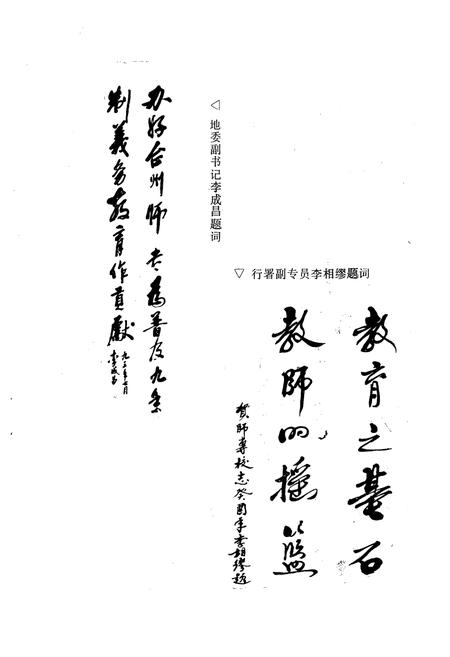 办好台州师专为普及九年
制义务教育作贡献
九三年七月
李成昌
◁ 地委副书记李成昌题词
▽ 行署副专员李相缪题词
教育之基石
教師的摇篮
贺師專校志癸酉年李相缪题